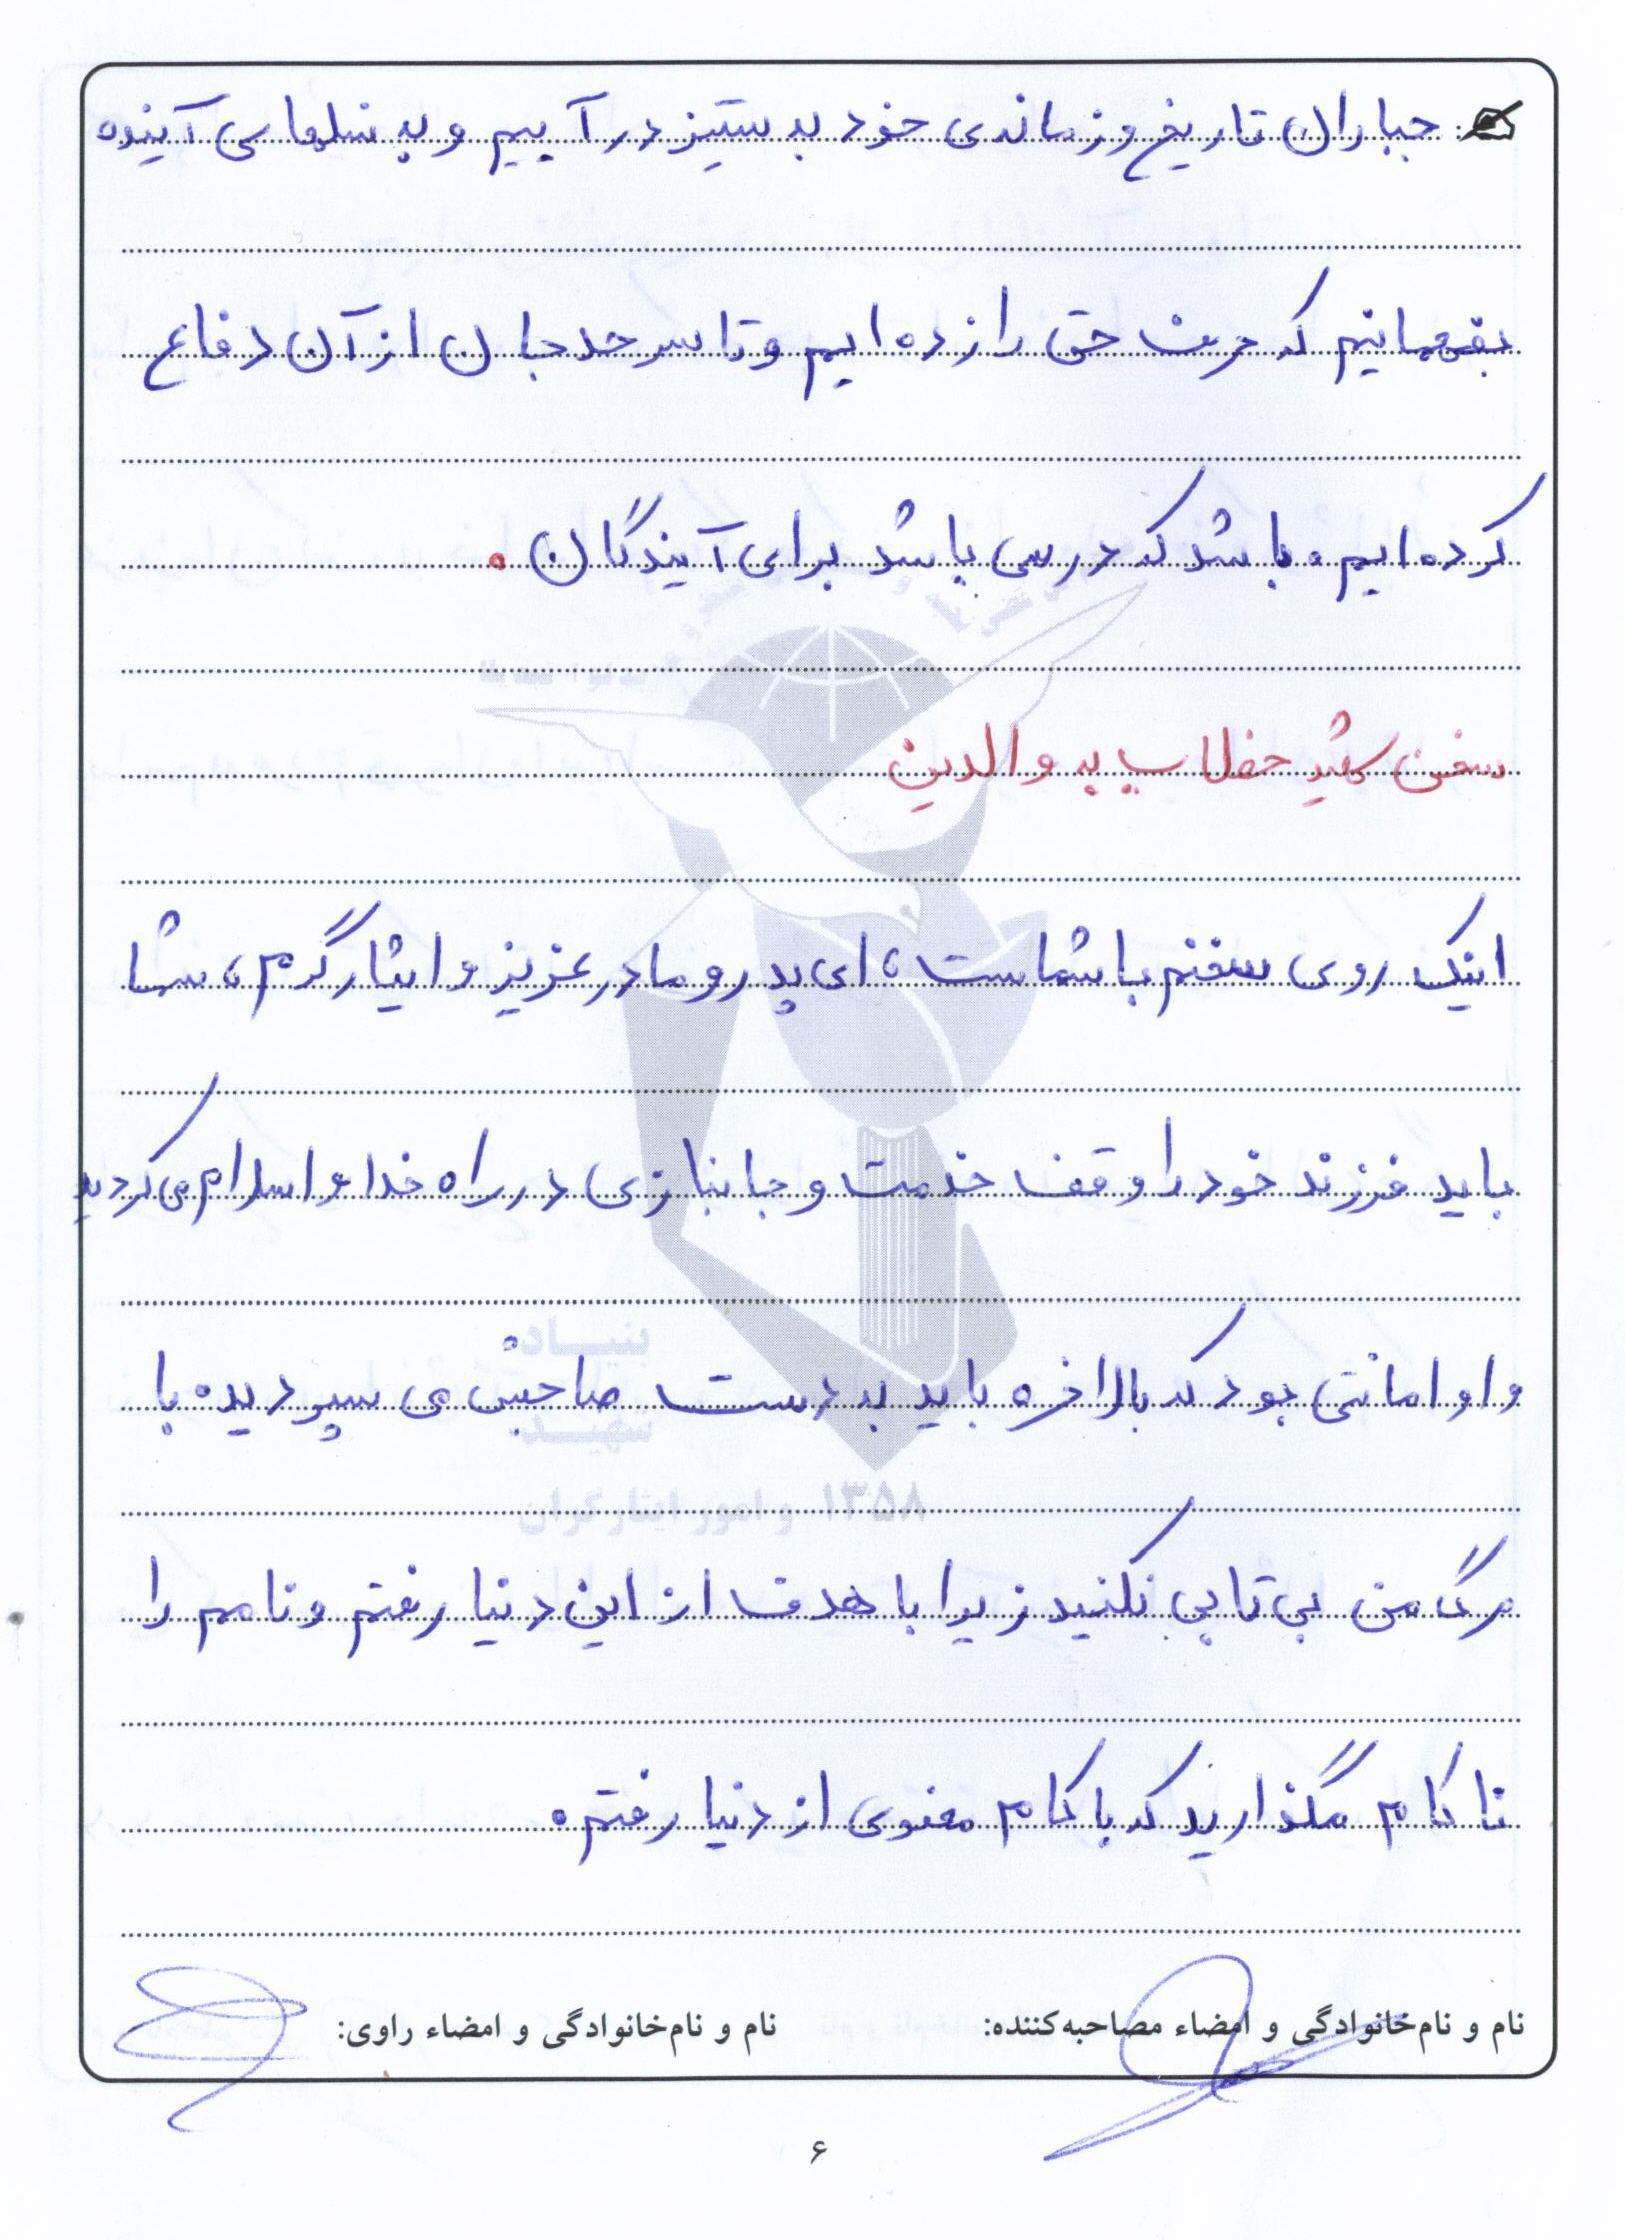 جباران تاریخ و زمانه‌ی خود به ستیز در آییم و به نسلهای آینده
بفهمانیم که حرف حق را زده ایم و تا سر حد جان از آن دفاع
کرده ایم. باشد که درسی باشد برای آیندگان.
سخن شهید خطاب به والدین
اینک روی سخنم با شماست، ای پدر و مادر عزیز و ایثارگرم، شما
باید فرزند خود را وقف خدمت و جانبازی در راه خدا و اسلام می کردید
و او امانتی بود که بالاخره باید به دست صاحبش می سپردید. با
مرگ من بی تابی نکنید زیرا با هدف از این دنیا رفتم و نامم را
ناکام مگذارید که با کام معنوی از دنیا رفتم.
بنیاد
شهید
و امور ایثارگران ۱۳۵۸
نام و نام‌خانوادگی و امضاء مصاحبه‌کننده: نام و نام‌خانوادگی و امضاء راوی:
۶